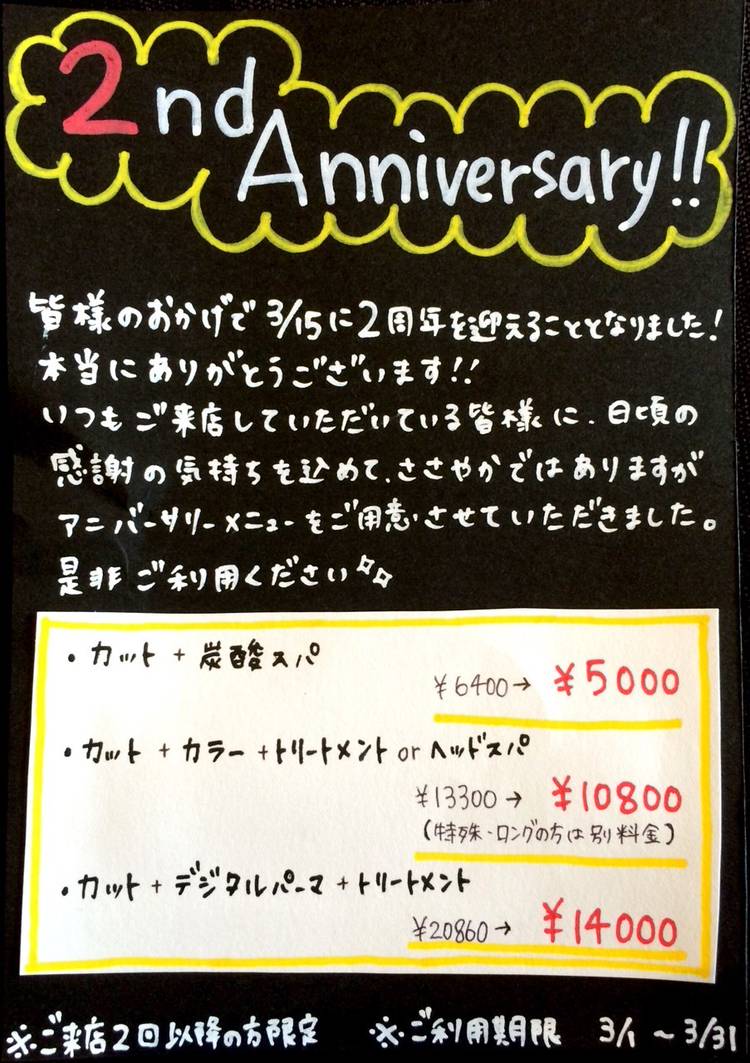 2nd
Anniversary!!
皆様のおかげで3/15に2周年を迎えることとなりました!
本当にありがとうございます!!
いつもご来店していただいている皆様に、日頃の
感謝の気持ちを込めて、ささやかではありますが
アニバーサリーメニューをご用意させていただきました。
是非ご利用ください
・カット+炭酸スパ
¥6400→ ¥5000
・カット+カラー+トリートメント or ヘッドスパ
¥13300→ ¥10800
(特殊・ロングの方は別料金)
・カット+デジタルパーマ+トリートメント
¥20860→ ¥14000
※ご来店2回以降の方限定 ※ご利用期限 3/1〜3/31